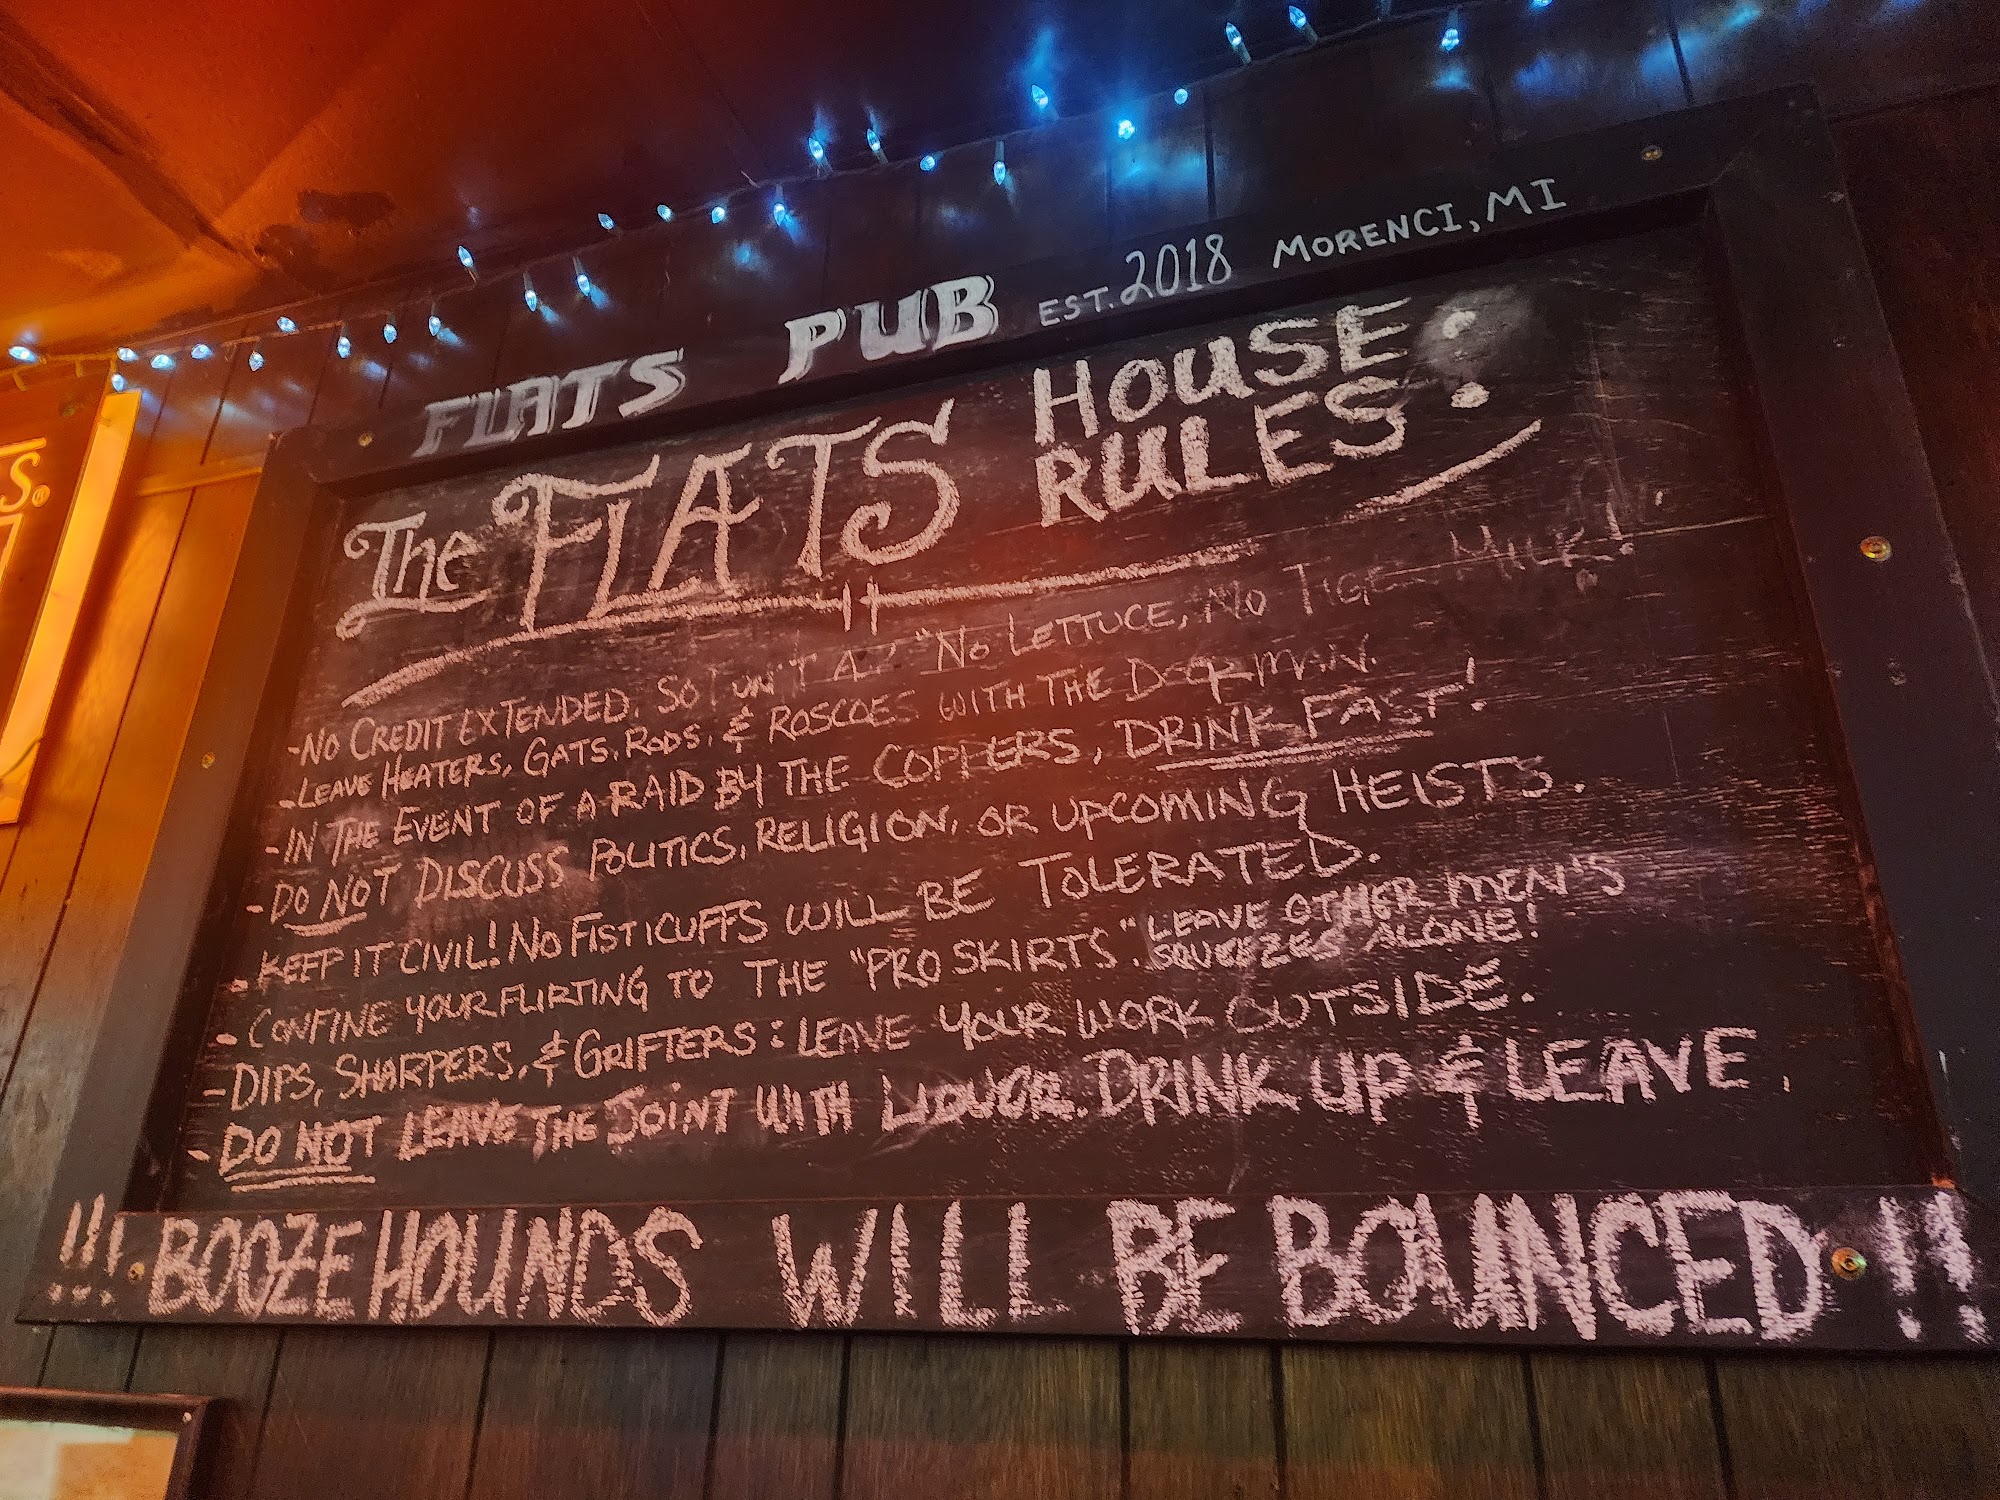 FLATS PUB EST. 2018 MORENCI, MI
The FLATS HOUSE RULES:
-NO CREDIT EXTENDED, SO DON'T "NO LETTUCE, NO MILK!
-LEAVE HEATERS, GATS, RODS, & ROSCOES WITH THE DOORMAN.
-IN THE EVENT OF A RAID BY THE COPPERS, DRINK FAST!
-DO NOT DISCUSS POLITICS, RELIGION, OR UPCOMING HEISTS.
-KEEP IT CIVIL! NO FISTICUFFS WILL BE TOLERATED.
-CONFINE YOUR FLIRTING TO THE "PRO SKIRTS". LEAVE OTHER MEN'S
SQUEEZES ALONE!
-DIPS, SHARPERS, & GRIFTERS: LEAVE YOUR WORK OUTSIDE.
-DO NOT LEAVE THE JOINT WITH LIQUOR. DRINK UP & LEAVE.
!!! BOOZEHOUNDS WILL BE BOUNCED !!
S®